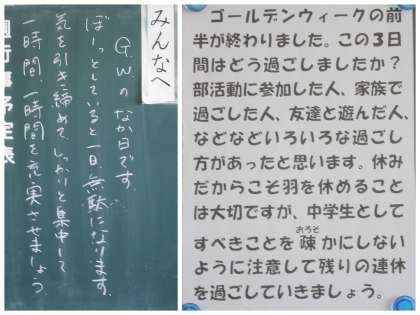 みんなへ
G.Wのなか日です。
ぼーっとしていると一日、無駄になります。
気を引き締めて、しっかりと集中して
一時間、一時間を充実させましょう。
週行事予定表
ゴールデンウィークの前
半が終わりました。この３日
間はどう過ごしましたか？
部活動に参加した人、家族で
過ごした人、友達と遊んだ人、
などなどいろいろな過ごし
方があったと思います。休み
だからこそ羽を休めること
は大切ですが、中学生として
すべきことを疎（おろそ）かにしない
ように注意して残りの連休
を過ごしていきましょう。